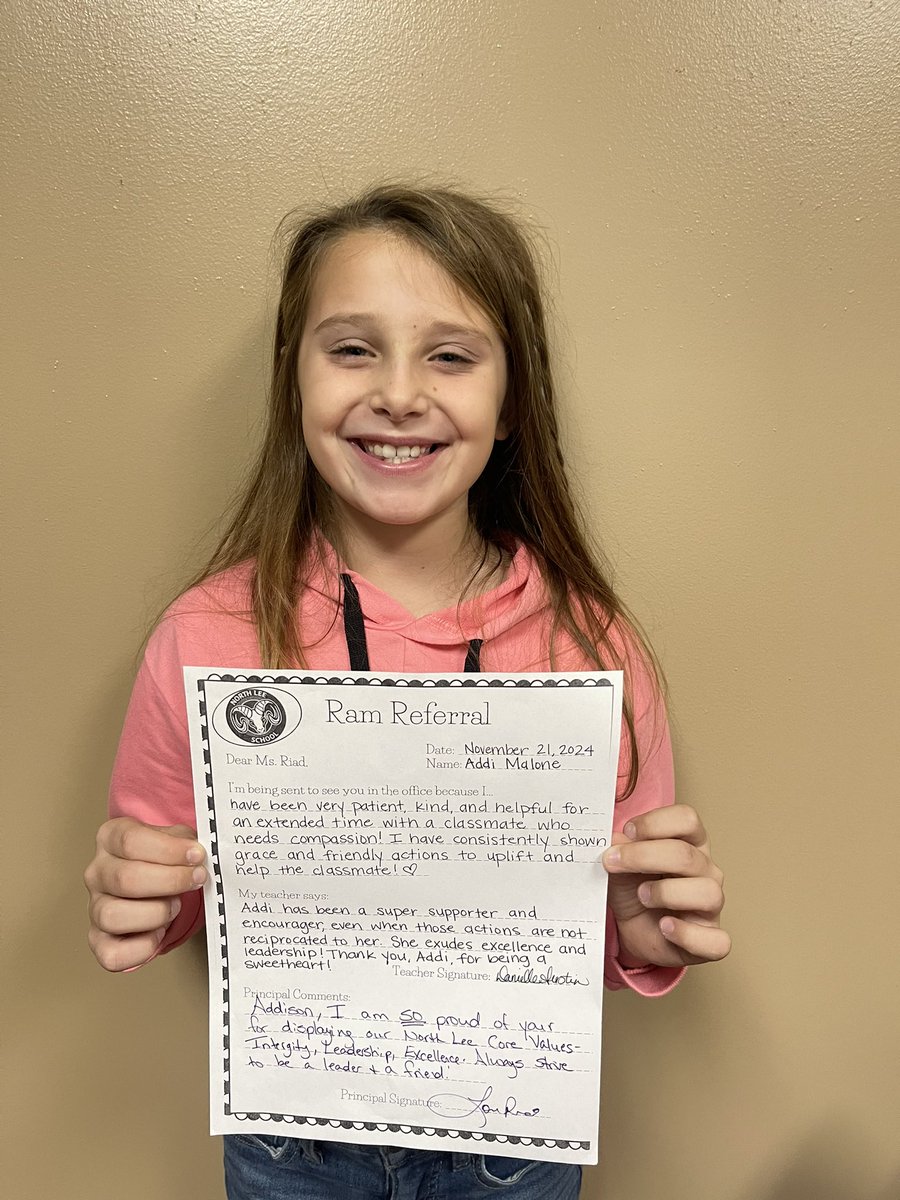 NORTH LEE
SCHOOL
Ram Referral
Date: November 21, 2024
Dear Ms. Riad,
Name: Addi Malone
I'm being sent to see you in the office because I...
have been very patient, kind, and helpful for
an extended time with a classmate who
needs compassion! I have consistently shown
grace and friendly actions to uplift and
help the classmate! ♡
My teacher says:
Addi has been a super supporter and
encourager, even when those actions are not
reciprocated to her. She exudes excellence and
leadership! Thank you, Addi, for being a
sweetheart!
Teacher Signature:
Principal Comments:
Addison, I am so proud of your
for displaying our North Lee Core Values-
Intergity, Leadership, Excellence. Always strive
to be a leader + a friend!
Principal Signature: